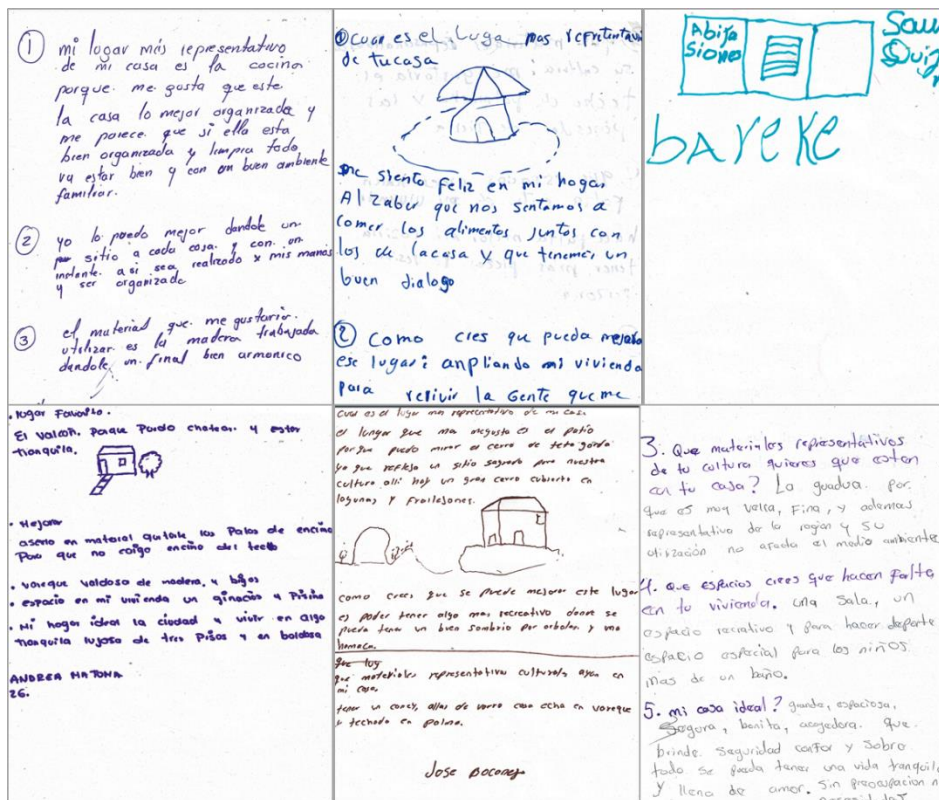 1 mi lugar más representativo
de mi casa es la cocina
porque. me gusta que este
la casa lo mejor organizada y
me parece que si ella esta
bien organizada y limpia todo
va estar bien y con un buen ambiente
familiar.
2 yo lo puedo mejor dandole un
sitio a cada cosa. y con un
instante. asi sea realizado x mis manos
y ser organizada
3 el material que me gustaria.
utilizar es la madera trabajada
dandole un final bien armonico
① Cual es el Luga mas
de tucasa
me siento feliz en mi hogar
Al zaber que nos sentamos a
comer los alimentos juntos con
los de lacasa y que tenemos un
buen dialogo
② Como cres que pueda
ese lugar: anpliando mi vivienda
Para rerivir la Gente que me
Abija
Siones
bAreKe
• lugar Favorito.
El valcon. Porque Puedo chatear. y estar
tranquila.
• Mejorar
aserio en material quitale los Palos de encima
Para que no caiga encima del techo
• vareque valdosa de madera. y
• espacio en mi vivienda un ginacio y Pisina
• Mi hogar ideal la ciudad y vivir en algo
tranquila lujosa de tres Pisos y en baldosa
ANDREA
26.
cual es el lugar mas representativo de mi casa.
el lungar que mas megusta es el patio
porque puedo mirar el cerro de teta gorda
ya que refleja un sitio sagrado para nuestra
cultura alli hay un gran cerro cubierto en
lagunas y frailejones.
como crees que se puede mejorar este lugar
es poder tener algo mas recreativo donde se
pueda tener un buen sombrio por arboles y una
hamaca.
que materiales representativos culturales ayan en
mi casa.
tener un ollas de varro casa echa en vareque
y techado en palma.
Jose
3. Que materiales representativos
de tu cultura quieres que esten
en tu casa? La guadua. por
que es muy vella, Fina, y ademas
representativo de la region y su
utilización no afecta el medio ambiente
4. Que espacios crees que hacen falta
en tu vivienda. una Sala., un
espacio recrativo y para hacer deporte
espacio especial para los niños
mas de un baño.
5. mi casa ideal? grande, espaciosa,
Segura, bonita, acogedora. que
brinde seguridad confor y sobre
todo se pueda tener una vida tranquila
y llena de amor. Sin preocupacion